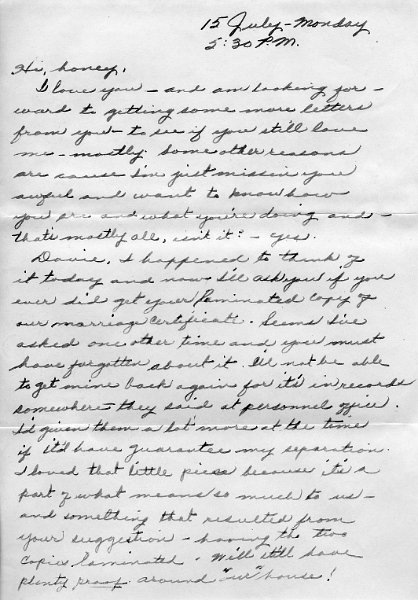 15 July - Monday
5:30 P.M.
Hi, honey,
I love you - and am looking for-
ward to getting some more letters
from you - to see if you still love
me - mostly. Some other reasons
are cause I'm just missin' you
awful and want to know how
you are and what you're doing and -
that's mostly all, isn't it? - yes.
Davie, I happened to think of
it today and now I'll ask you if you
ever did get your laminated copy of
our marriage certificate. Seems I've
asked one other time and you must
have forgotten about it. I'll not be able
to get mine back again for it's in records
somewhere - they said at personnel office.
I'd given them a lot more at the time
if it'd have guarantee my separation.
I loved that little piece because it's a
part of what means so much to us -
and something that resulted from
your suggestion - having the two
copies laminated. Will still have
plenty proof around "our" house!